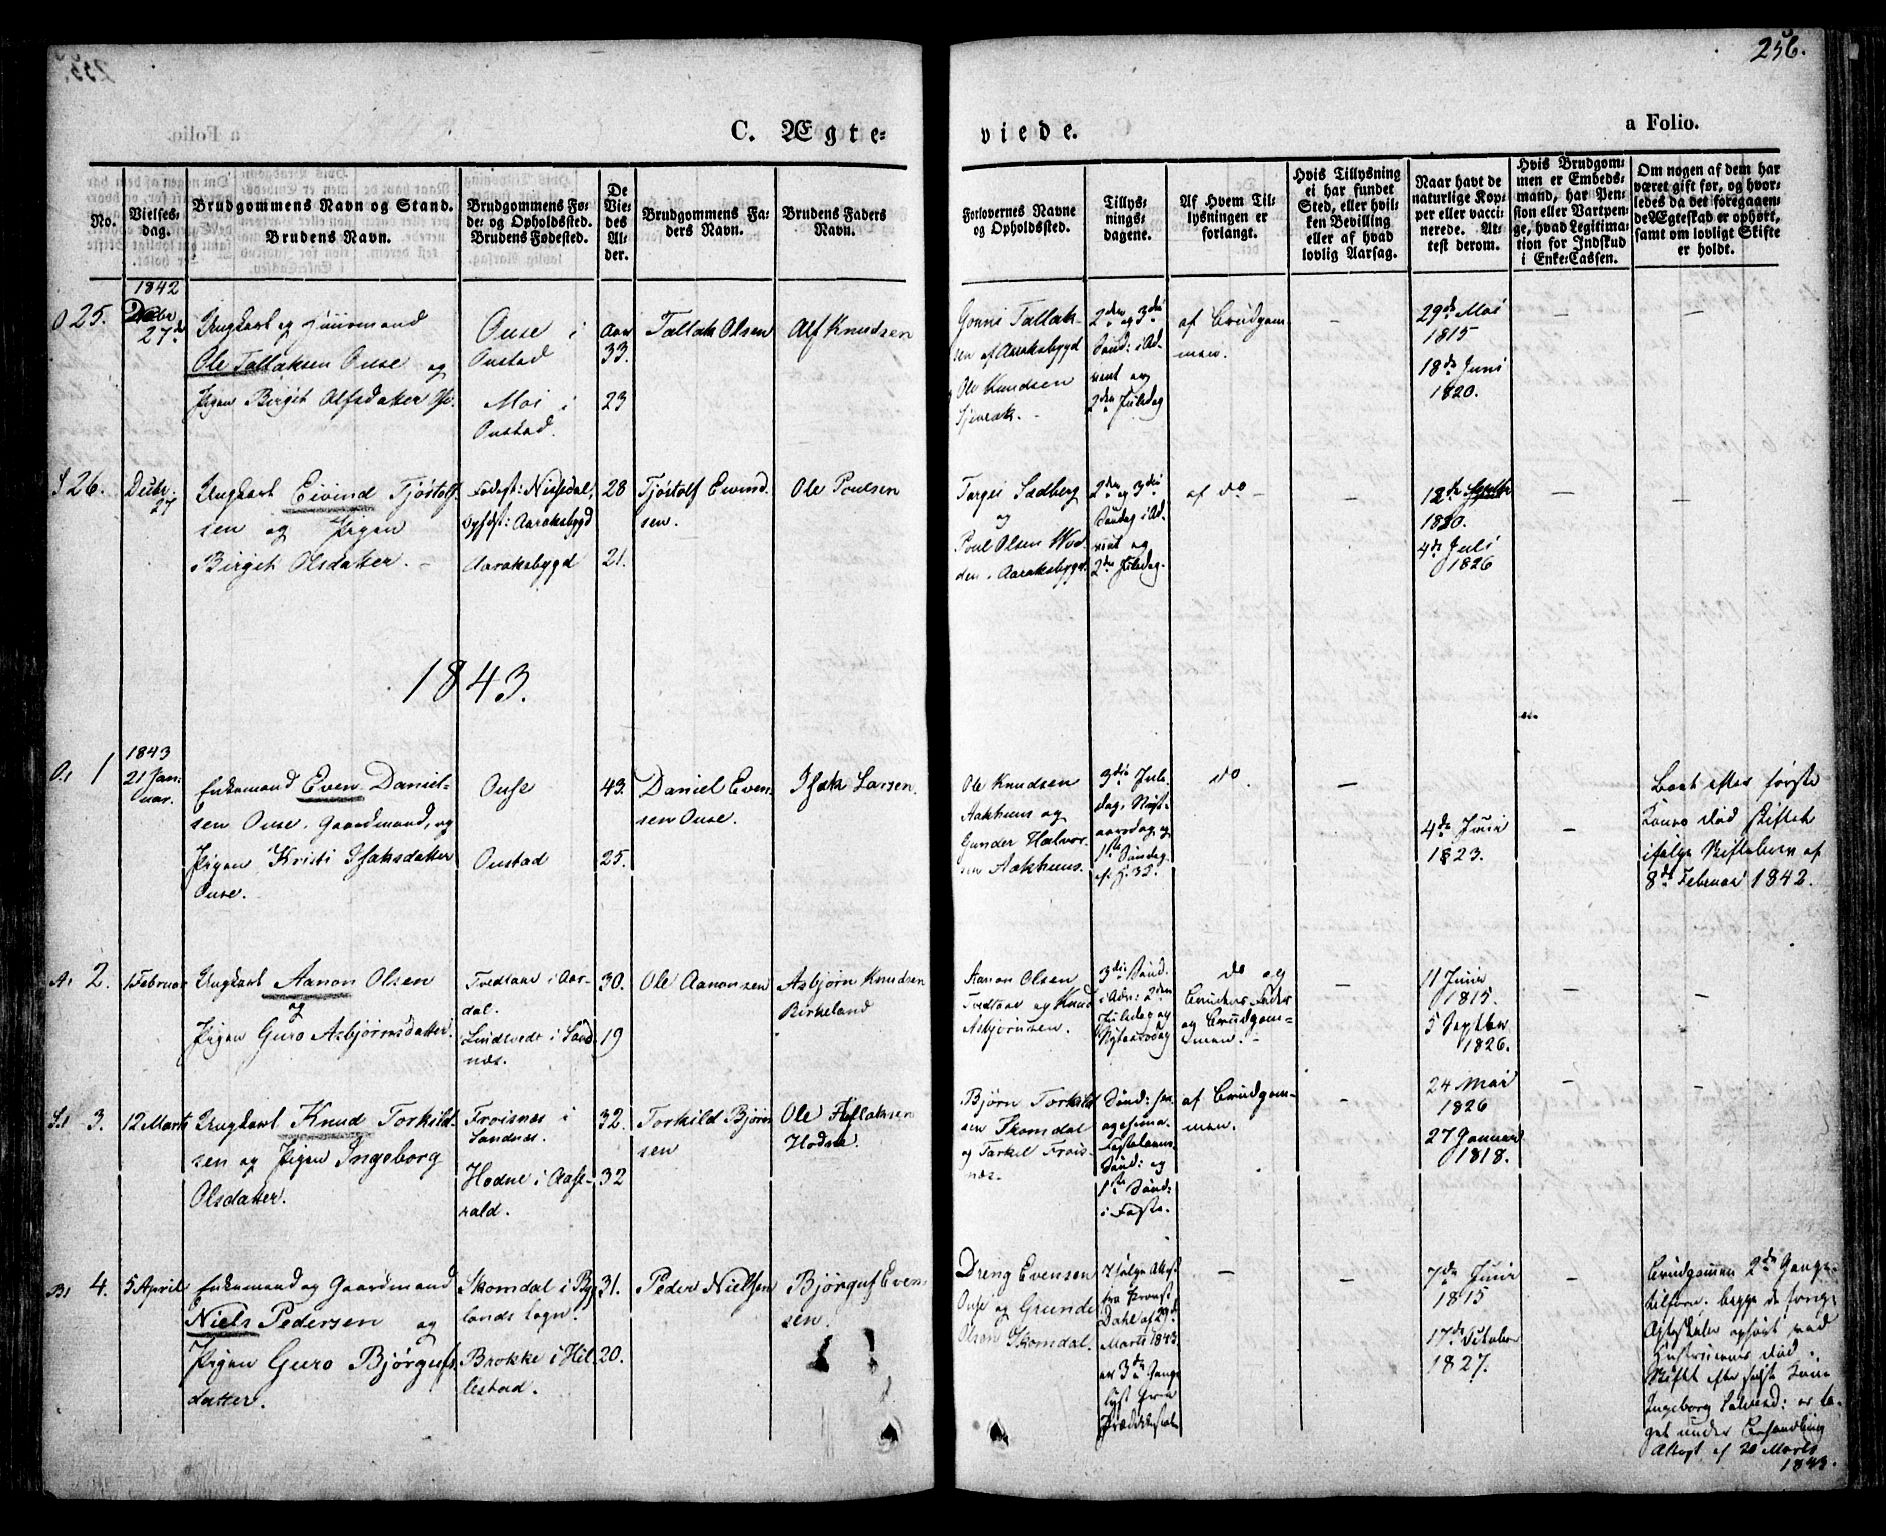 256.
C. Ægte=
viede.
a Folio.
No.
Vielses=
dag.
Brudgommens Navn og Stand.
Brudens Navn.
Brudgommens Fø=
de= og Opholdssted.
Brudens Fødested.
De
Vi=
edes
Al=
der.
Brudgommens Fa=
ders Navn.
Brudens Faders
Navn.
Forlovernes Navne
og Opholdssted.
Tillys=
nings=
dagene.
Af Hvem Til=
lysningen er
forlangt.
Hvis Tillysning
ei har fundet
Sted, eller hvil=
ken Bevilling
eller af hvad
lovlig Aarsag.
Naar havt de
naturlige Kop=
per eller vacci=
nerede. At=
test derom.
Hvis Brudgom=
men er Embeds=
mand, har Pen=
sion eller Vartpen=
ge, hvad Legitima=
tion for Indskud
i Enke=Cassen.
Om nogen af dem har
været gift før, og hvor=
ledes da det foregaaen=
de Ægteskab er ophørt,
samt om lovligt Skifte
er holdt.
1842
O 25.
27de
Ungkarl og
Ole Tallaksen Ouse og
Pigen Birgit Alfsdatter
Ouse i
Onstad
Moi i
Onstad.
Aar
33.
23
Tallak Olsen
Alf Knudsen
Gonni Tallak-
sen af Aaraksbygd
Ole Knudsen
2den og 3die
Sønd: i Ad-
vent og
2den Juledag
af Brudgom-
men.
29de Mai
1815
18de Juni
1820.
S 26.
Decbr.
27
Ungkarl Eivind Tjøstolf-
sen og Pigen
Birgit Olsdatter.
Fødest: Nissedal,
Opfdst: Aaraksbygd
Aaraksbygd
28
21.
Tjøstolf Eivind-
sen.
Ole Poulsen
Targei Sædberg
og
Poul Olsen
den i Aaraksbygd
2den og 3die
Søndag i Ad-
vent og
2den Juledag.
af do
12de
1820.
4de Juli
1826
1843.
O. 1
1843
21 Jan:
uar.
Enkemand Even Daniel-
sen Ouse, Gaardmand, og
Pigen Kristi Isaksdatter
Ouse.
Ouse
Onstad
43.
25.
Daniel Even-
sen Ouse.
Isak Larsen.
Ole Knudsen
Aakhuus og
Gunder Halvor-
sen Aakhuus.
3die Jule-
dag, Nyt-
aarsdag og
1ste Søndag
do.
4de Junii
1823.
efter første
Kones død Skiftet
ifølge Skiftebrev af
8de Februar 1842.
A. 2.
1 Februar
Ungkarl Aanon Olsen
og
Pigen Guro Asbjørnsdatter.
Tvedtane i Aar-
dal.
Lindtvedt i Sand-
næs.
30.
19
Ole Aanonsen
Asbjørn Knudsen
Birkeland
Aanon Olsen
Tvedtane og Knud
Asbjørnssen.
3die Sønd.
i Adv: 2den
Juledag og
Nytaarsdag
do og
Brudens Fader
og Brudgom-
men.
11 Junii
1815.
5 Septbr
1826.
S. 3.
12 Marts
Ungkarl Knud Torkild-
sen og Pigen Ingeborg
Olsdatter.
Froisnæs i
Sandnæs.
Hodne i Aase-
rald.
32.
32
Torkild Bjørn-
sen
Ole Aslaksen
Hodne.
Bjørn Torkild-
sen Skomdal
og Tarkel Frois-
næs.
Sønd:
Fastelavns-
Sønd: og
1ste Sønd:
i Faste.
af Brudgom-
men.
24 Mai
1826
27 Januar
1818.
B. 4.
5 April
Enkemand og Gaardmand
Niels Pedersen og
Pigen Guro Bjørgufs-
datter.
Skomdal i Byg-
lands Sogn.
Brokke i Hil-
lestad.
31.
20.
Peder Nielsen
Bjørguf Even-
sen.
Dreng Evensen
Ouse og Grunde
Olson Skomdal.
Ifølge Attest
fra Provst
Dahl af 29de
Marts 1843
er 3de Gange
lyst fra
Prædikestolen
7de Junii
1815
17de October
1827.
Brudgommen 2de Gange
tilforn. begge de forrige
Ægteskaber ophørt ved
Hustruernes død.
Skiftet efter sidste Kone
Ingeborg Salvesd: er ta-
get under Behandling
Attest af 20 Marts
1843.